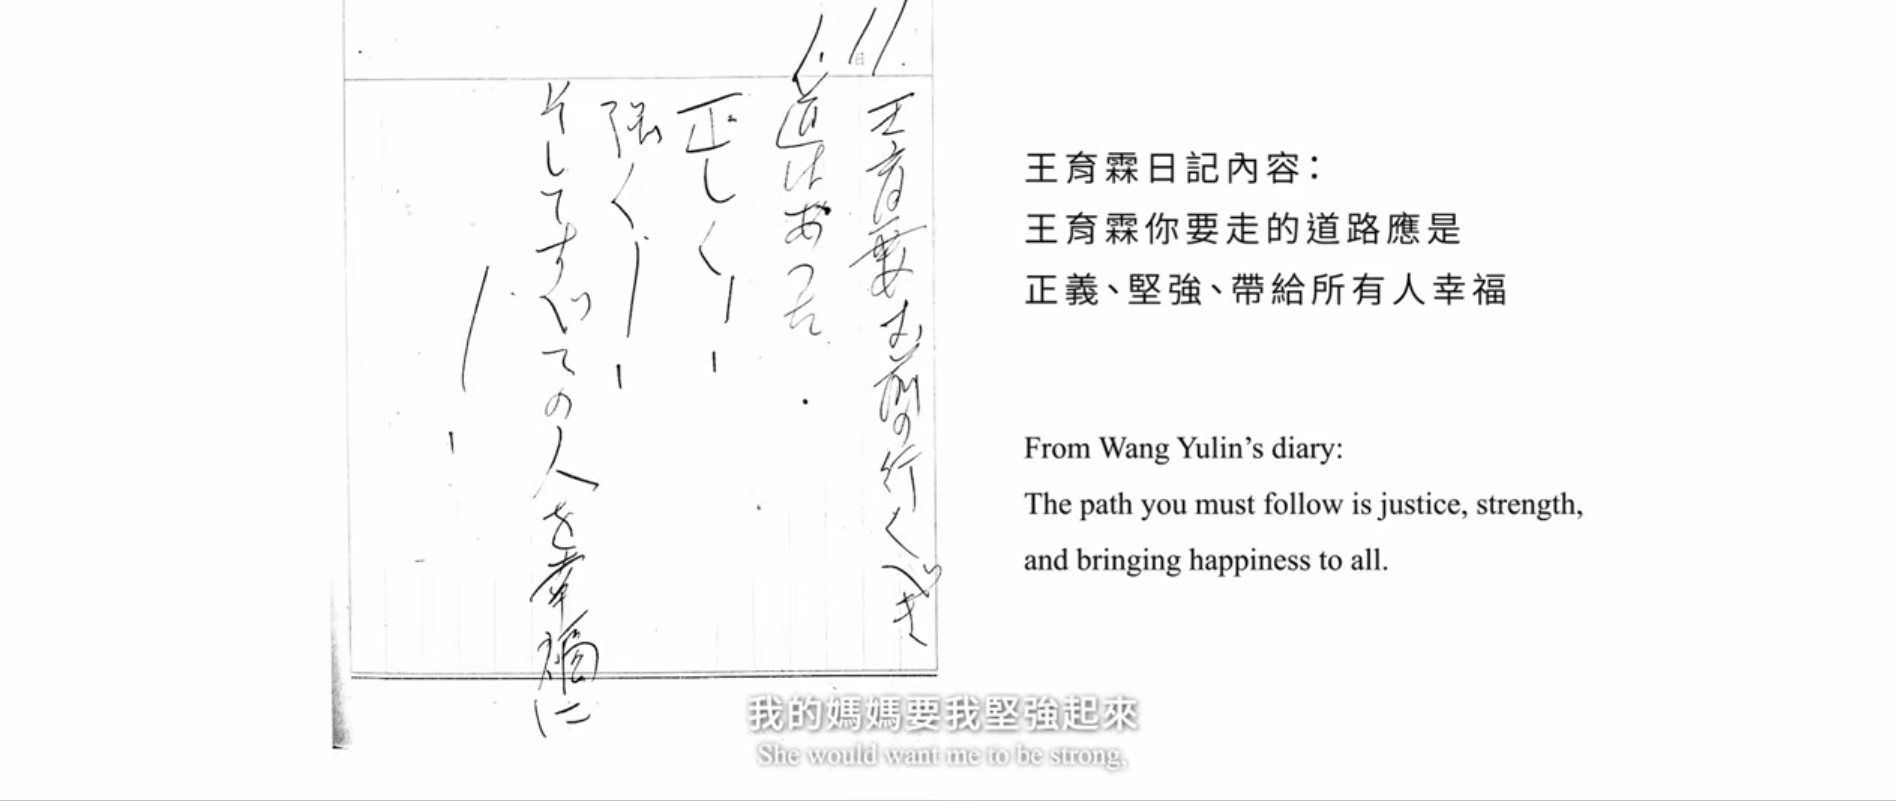 11
日
王育霖お前の行くべき
道はあつた
正しく！
強く！
そしてすべての人を幸福に
！
王育霖日記內容：
王育霖你要走的道路應是
正義、堅強、帶給所有人幸福
From Wang Yulin’s diary:
The path you must follow is justice, strength,
and bringing happiness to all.
我的媽媽要我堅強起來
She would want me to be strong,